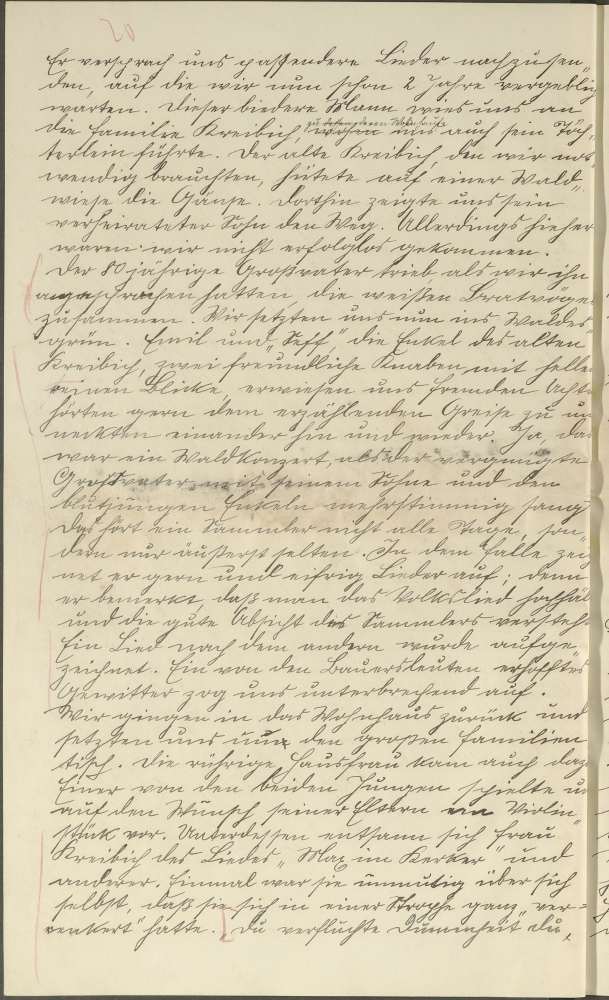 50
Er versprach uns passendere Lieder nachzusen„
den, auf die wir nun schon 2 Jahre vergeblich
warten. Dieser biedere Mann wies uns an
die Familie Kreibich, wohin uns auch sein Töch„
terlein führte. Der alte Kreibich, den wir not„
wendig brauchten, hütete auf einer Wald„
wiese die Gänse. Dorthin zeigte uns sein
verheirateter Sohn den Weg. Allerdings hieher
waren wir nicht erfolglos gekommen.
Der 80 jährige Großvater trieb als wir ihn
angesprochen hatten, die weißen Bratvögel
zusammen. Wir setzten uns nun ins Waldes„
grün. Emil und „Seff“, die Enkel des alten
Kreibich, zwei freundliche Knaben mit hellem
reinen Blicke, erwiesen uns Fremden Acht
hörten gern dem erzählenden Greise zu un
neckten einander hin und wieder. Ja, das
war ein Waldkonzert, als der vergnügte
Großvater mit seinem Sohne und den
blutjungen Enkeln mehrstimmig sang.
Das hört ein Sammler nicht alle Tage, son„
dern nur äußerst selten. In dem Falle zeich
net er gern und eifrig Lieder auf; denn
er bemerkt, daß man das Volkslied hochhäl
und die gute Absicht des Sammlers versteht
Ein Lied nach dem andern wurde aufge„
zeichnet. Ein von den Bauersleuten erhofftes
Gewitter zog uns unterbrechend auf.
Wir gingen in das Wohnhaus zurück und
setzten uns um den großen Familien
tisch. Die rührige Hausfrau kam auch dazu
Einer von den beiden Jungen spielte un
auf den Wunsch seiner Eltern ein Violin„
stück vor. Unterdessen entsann sich Frau
Kreibich des Liedes „Max im Kerker“ und
anderer. Einmal war sie unmutig über sich
selbst, daß sie sich in einer Strophe ganz „ver-
renkert“ hatte. „Du verfluchte Dummheit du,